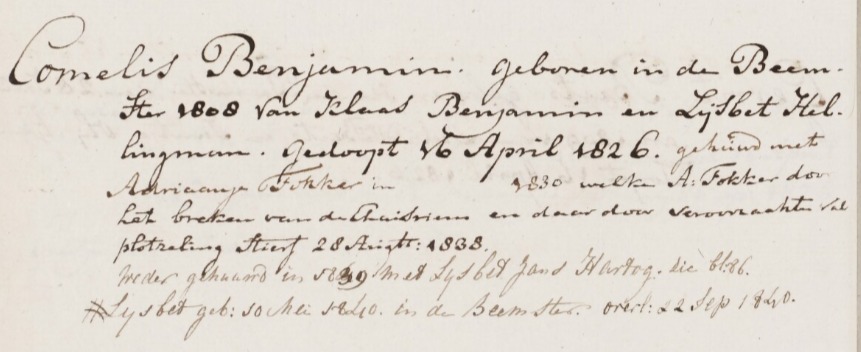 Cornelis Benjamin. geboren in de Beem-
ster 1808 van Klaas Benjamin en Lijsbet Hel-
lingman. Gedoopt 16 April 1826. gehuwd met
Adriaantje Fokker in 1830 welke A: Fokker door
het breken van de Chaisriem en daar door veroorzaakte val
plotzeling stierf 28 Augt: 1838.
weder gehuuwd in 1839 met Lijsbet Jans Hartog. zie bl: 86.
# Lijsbet geb: 10 Mei 1840. in de Beemster. overl: 22 Sep 1840.